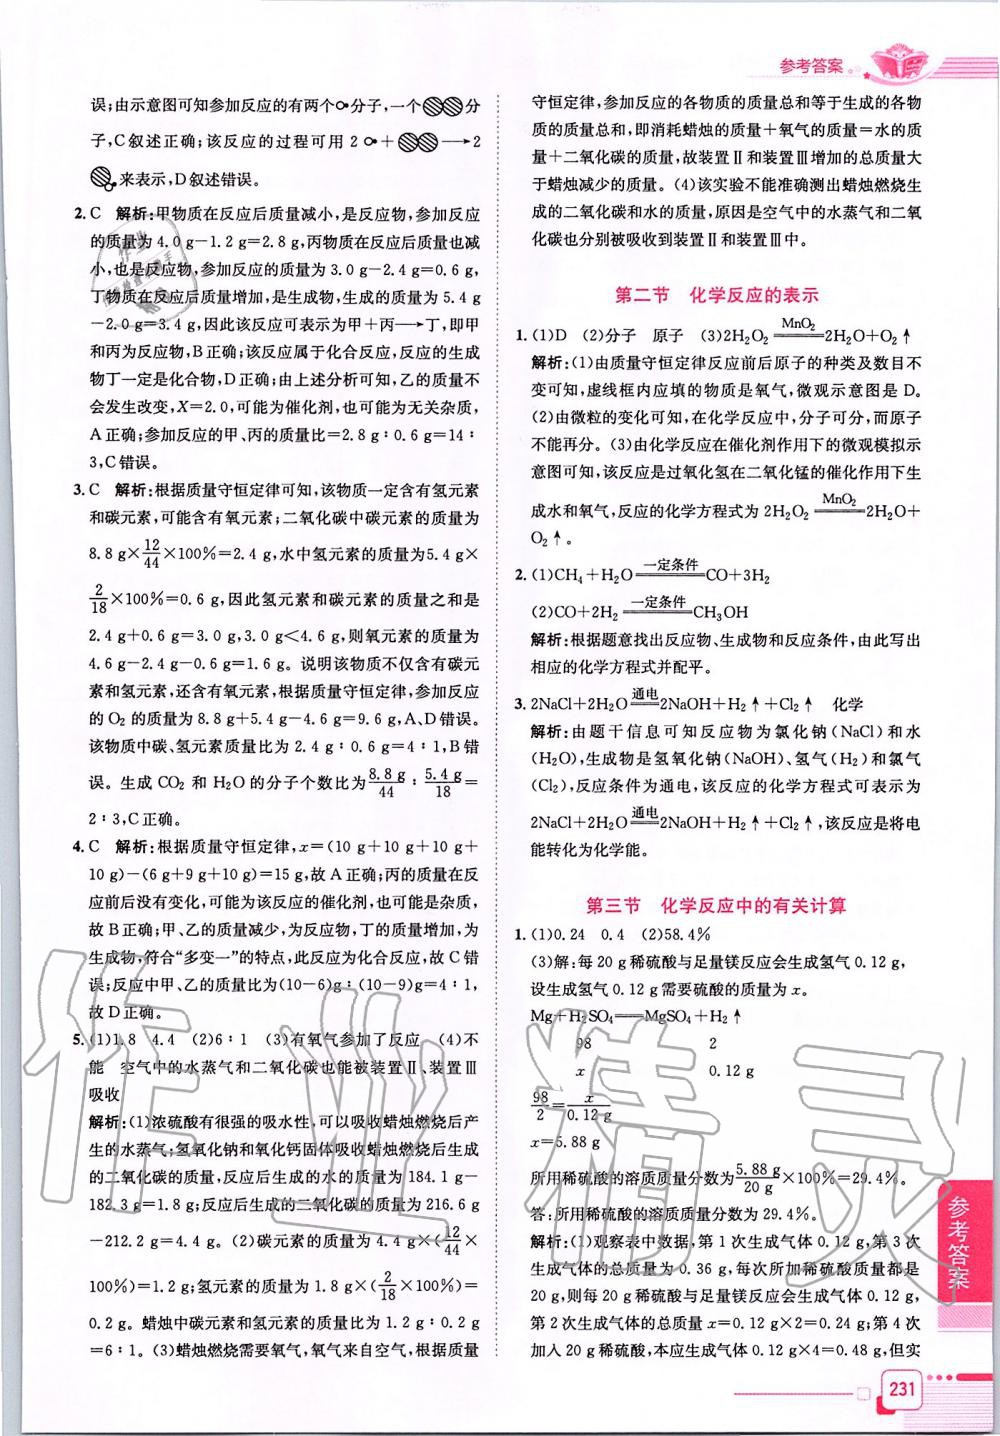 参考答案
误;由示意图可知参加反应的有两个分子,一个分
子,C叙述正确;该反应的过程可用 2 + ⟶2
来表示,D叙述错误。
2. C 解析:甲物质在反应后质量减小,是反应物,参加反应
的质量为 4.0 g-1.2 g=2.8 g,丙物质在反应后质量也减
小,也是反应物,参加反应的质量为 3.0 g-2.4 g=0.6 g,
丁物质在反应后质量增加,是生成物,生成的质量为 5.4 g
-2.0 g=3.4 g,因此该反应可表示为甲+丙⟶丁,即甲
和丙为反应物,B正确;该反应属于化合反应,反应的生成
物丁一定是化合物,D正确;由上述分析可知,乙的质量不
会发生改变,X=2.0,可能为催化剂,也可能为无关杂质,
A正确;参加反应的甲、丙的质量比=2.8 g∶0.6 g=14∶
3,C错误。
3. C 解析:根据质量守恒定律可知,该物质一定含有氢元素
和碳元素,可能含有氧元素;二氧化碳中碳元素的质量为
8.8 g×12/44×100%=2.4 g,水中氢元素的质量为5.4 g×
2/18×100%=0.6 g,因此氢元素和碳元素的质量之和是
2.4 g+0.6 g=3.0 g,3.0 g<4.6 g,则氧元素的质量为
4.6 g-2.4 g-0.6 g=1.6 g。说明该物质不仅含有碳元
素和氢元素,还含有氧元素,根据质量守恒定律,参加反应
的 O₂ 的质量为 8.8 g+5.4 g-4.6 g=9.6 g,A、D错误。
该物质中碳、氢元素质量比为 2.4 g∶0.6 g=4∶1,B错
误。生成 CO₂ 和 H₂O 的分子个数比为8.8 g/44∶5.4 g/18=
2∶3,C正确。
4. C 解析:根据质量守恒定律,x=(10 g+10 g+10 g+
10 g)-(6 g+9 g+10 g)=15 g,故A正确;丙的质量在反
应前后没有变化,可能为该反应的催化剂,也可能是杂质,
故B正确;甲、乙的质量减少,为反应物,丁的质量增加,为
生成物,符合“多变一”的特点,此反应为化合反应,故C错
误;反应中甲、乙的质量比为(10-6)g∶(10-9)g=4∶1,
故D正确。
5. (1)1.8 4.4 (2)6∶1 (3)有氧气参加了反应 (4)不
能 空气中的水蒸气和二氧化碳也能被装置Ⅱ、装置Ⅲ
吸收
解析:(1)浓硫酸有很强的吸水性,可以吸收蜡烛燃烧后产
生的水蒸气;氢氧化钠和氧化钙固体吸收蜡烛燃烧后生成
的二氧化碳的质量,反应后生成的水的质量为 184.1 g-
182.3 g=1.8 g;反应后生成的二氧化碳的质量为 216.6 g
-212.2 g=4.4 g。(2)碳元素的质量为 4.4 g×(12/44×
100%)=1.2 g;氢元素的质量为 1.8 g×(2/18×100%)=
0.2 g。蜡烛中碳元素和氢元素的质量比为 1.2 g∶0.2 g
=6∶1。(3)蜡烛燃烧需要氧气,氧气来自空气,根据质量
守恒定律,参加反应的各物质的质量总和等于生成的各物
质的质量总和,即消耗蜡烛的质量+氧气的质量=水的质
量+二氧化碳的质量,故装置Ⅱ和装置Ⅲ增加的总质量大
于蜡烛减少的质量。(4)该实验不能准确测出蜡烛燃烧生
成的二氧化碳和水的质量,原因是空气中的水蒸气和二氧
化碳也分别被吸收到装置Ⅱ和装置Ⅲ中。
第二节 化学反应的表示
1. (1)D (2)分子 原子 (3)2H₂O₂ ═MnO₂═ 2H₂O+O₂↑
解析:(1)由质量守恒定律反应前后原子的种类及数目不
变可知,虚线框内应填的物质是氧气,微观示意图是 D。
(2)由微粒的变化可知,在化学反应中,分子可分,而原子
不能再分。(3)由化学反应在催化剂作用下的微观模拟示
意图可知,该反应是过氧化氢在二氧化锰的催化作用下生
成水和氧气,反应的化学方程式为 2H₂O₂ ═MnO₂═ 2H₂O+
O₂↑。
2. (1)CH₄+H₂O ═一定条件═ CO+3H₂
(2)CO+2H₂ ═一定条件═ CH₃OH
解析:根据题意找出反应物、生成物和反应条件,由此写出
相应的化学方程式并配平。
3. 2NaCl+2H₂O ═通电═ 2NaOH+H₂↑+Cl₂↑ 化学
解析:由题干信息可知反应物为氯化钠(NaCl)和水
(H₂O),生成物是氢氧化钠(NaOH)、氢气(H₂)和氯气
(Cl₂),反应条件为通电,该反应的化学方程式可表示为
2NaCl+2H₂O ═通电═ 2NaOH+H₂↑+Cl₂↑,该反应是将电
能转化为化学能。
第三节 化学反应中的有关计算
1. (1)0.24 0.4 (2)58.4%
(3)解:每 20 g 稀硫酸与足量镁反应会生成氢气 0.12 g,
设生成氢气 0.12 g 需要硫酸的质量为 x。
Mg+H₂SO₄══MgSO₄+H₂↑
98 2
x 0.12 g
98/2=x/0.12 g
x=5.88 g
所用稀硫酸的溶质质量分数为5.88 g/20 g×100%=29.4%。
答:所用稀硫酸的溶质质量分数为 29.4%。
解析:(1)观察表中数据,第 1 次生成气体 0.12 g,第 3 次
生成气体的总质量为 0.36 g,每次所加稀硫酸质量都是
20 g,则每 20 g 稀硫酸与足量镁反应会生成气体 0.12 g,
第 2 次生成气体的总质量 m=0.12 g×2=0.24 g;第 4 次
加入 20 g 稀硫酸,本应生成气体 0.12 g×4=0.48 g,但实
参考答案
231
作业精灵